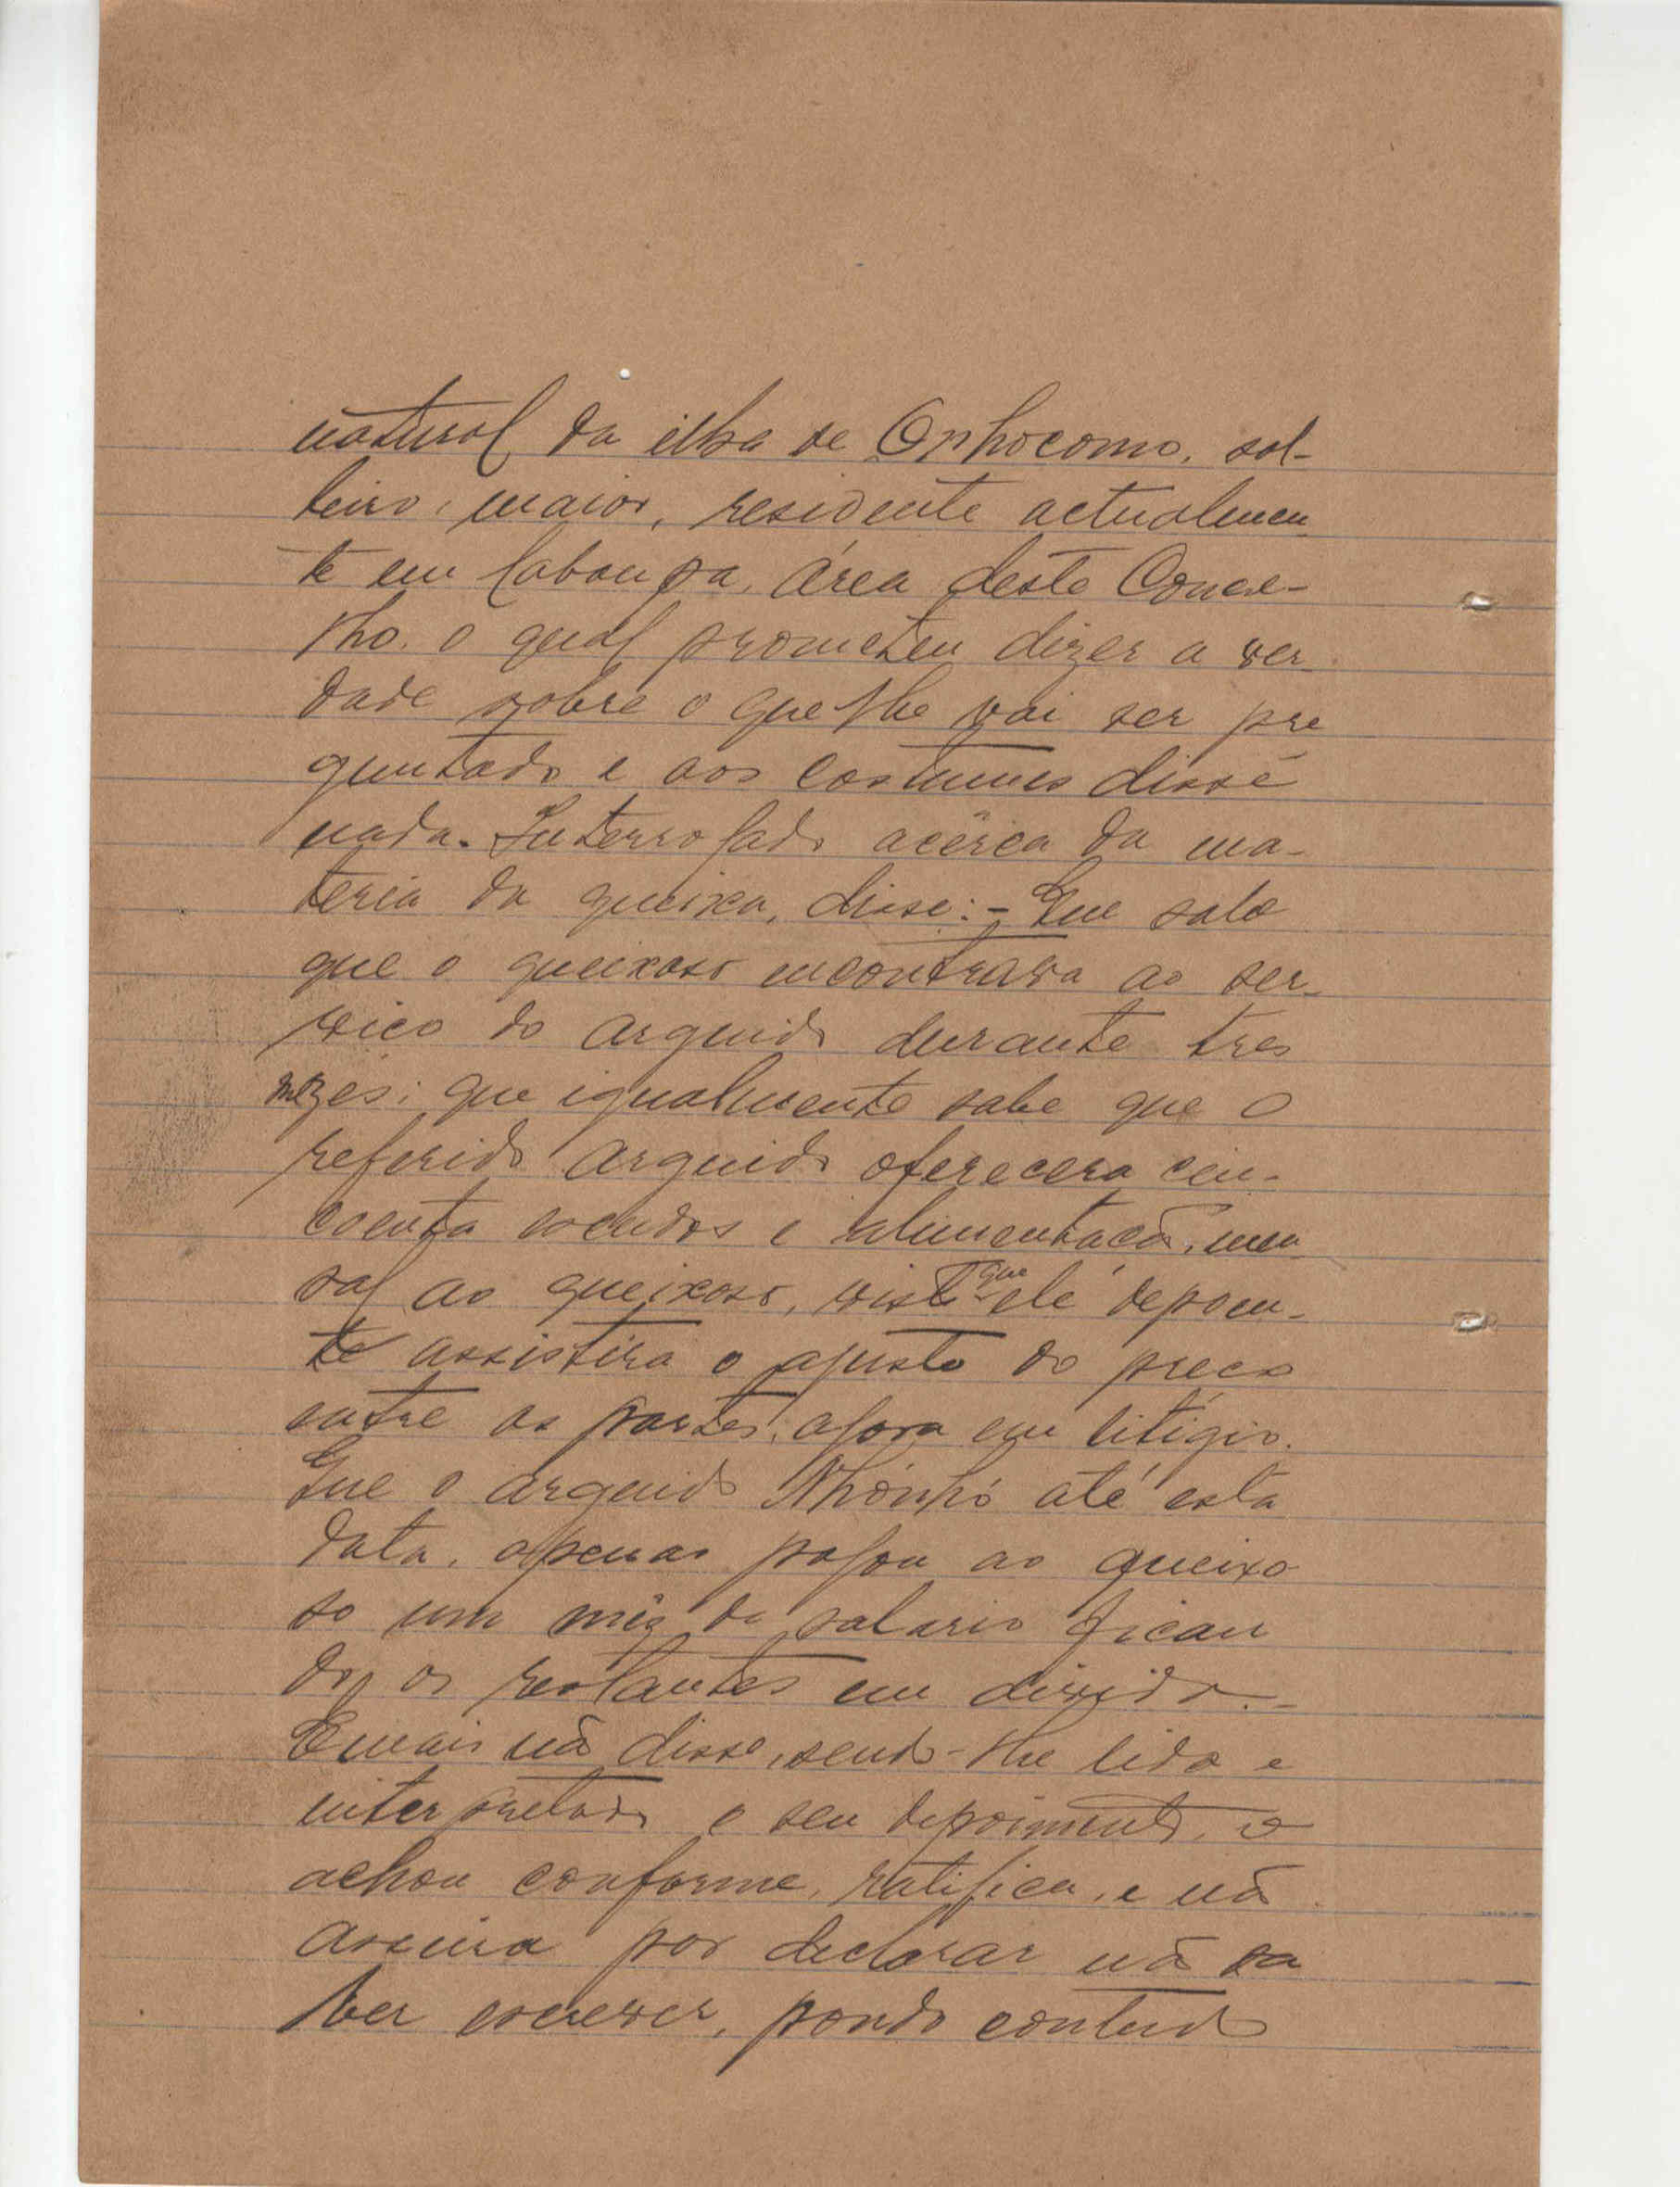 natural da ilha de Onhocomo, sol-
teiro, maior, residente actualmen
te em Caboupa, área deste Conce-
lho, o qual prometeu dizer a ver
dade sobre o que lhe vai ser pre
guntado e aos costumes disse
nada. Interrogado acêrca da ma-
teria da queixa, disse:- Que sabe
que o queixoso encontrava ao ser-
viço do arguido durante tres
mezes; que igualmente sabe que o
referido arguido oferecera cin-
coenta escudos e alimentação, men
sal ao queixoso, visto que ele depoen-
te assistira o ajusto do preço
entre as partes, agora em litigio.
Que o arguido Nhónhó até esta
data, apenas pagou ao queixo
so um mêz de salario fican
do, os restantes em divida.-
E mais não disse, sendo-lhe lido e
interpretado o seu depoimento, o
achou conforme, ratifica, e não
assina por declarar não sa
ber escrever, pondo contudo